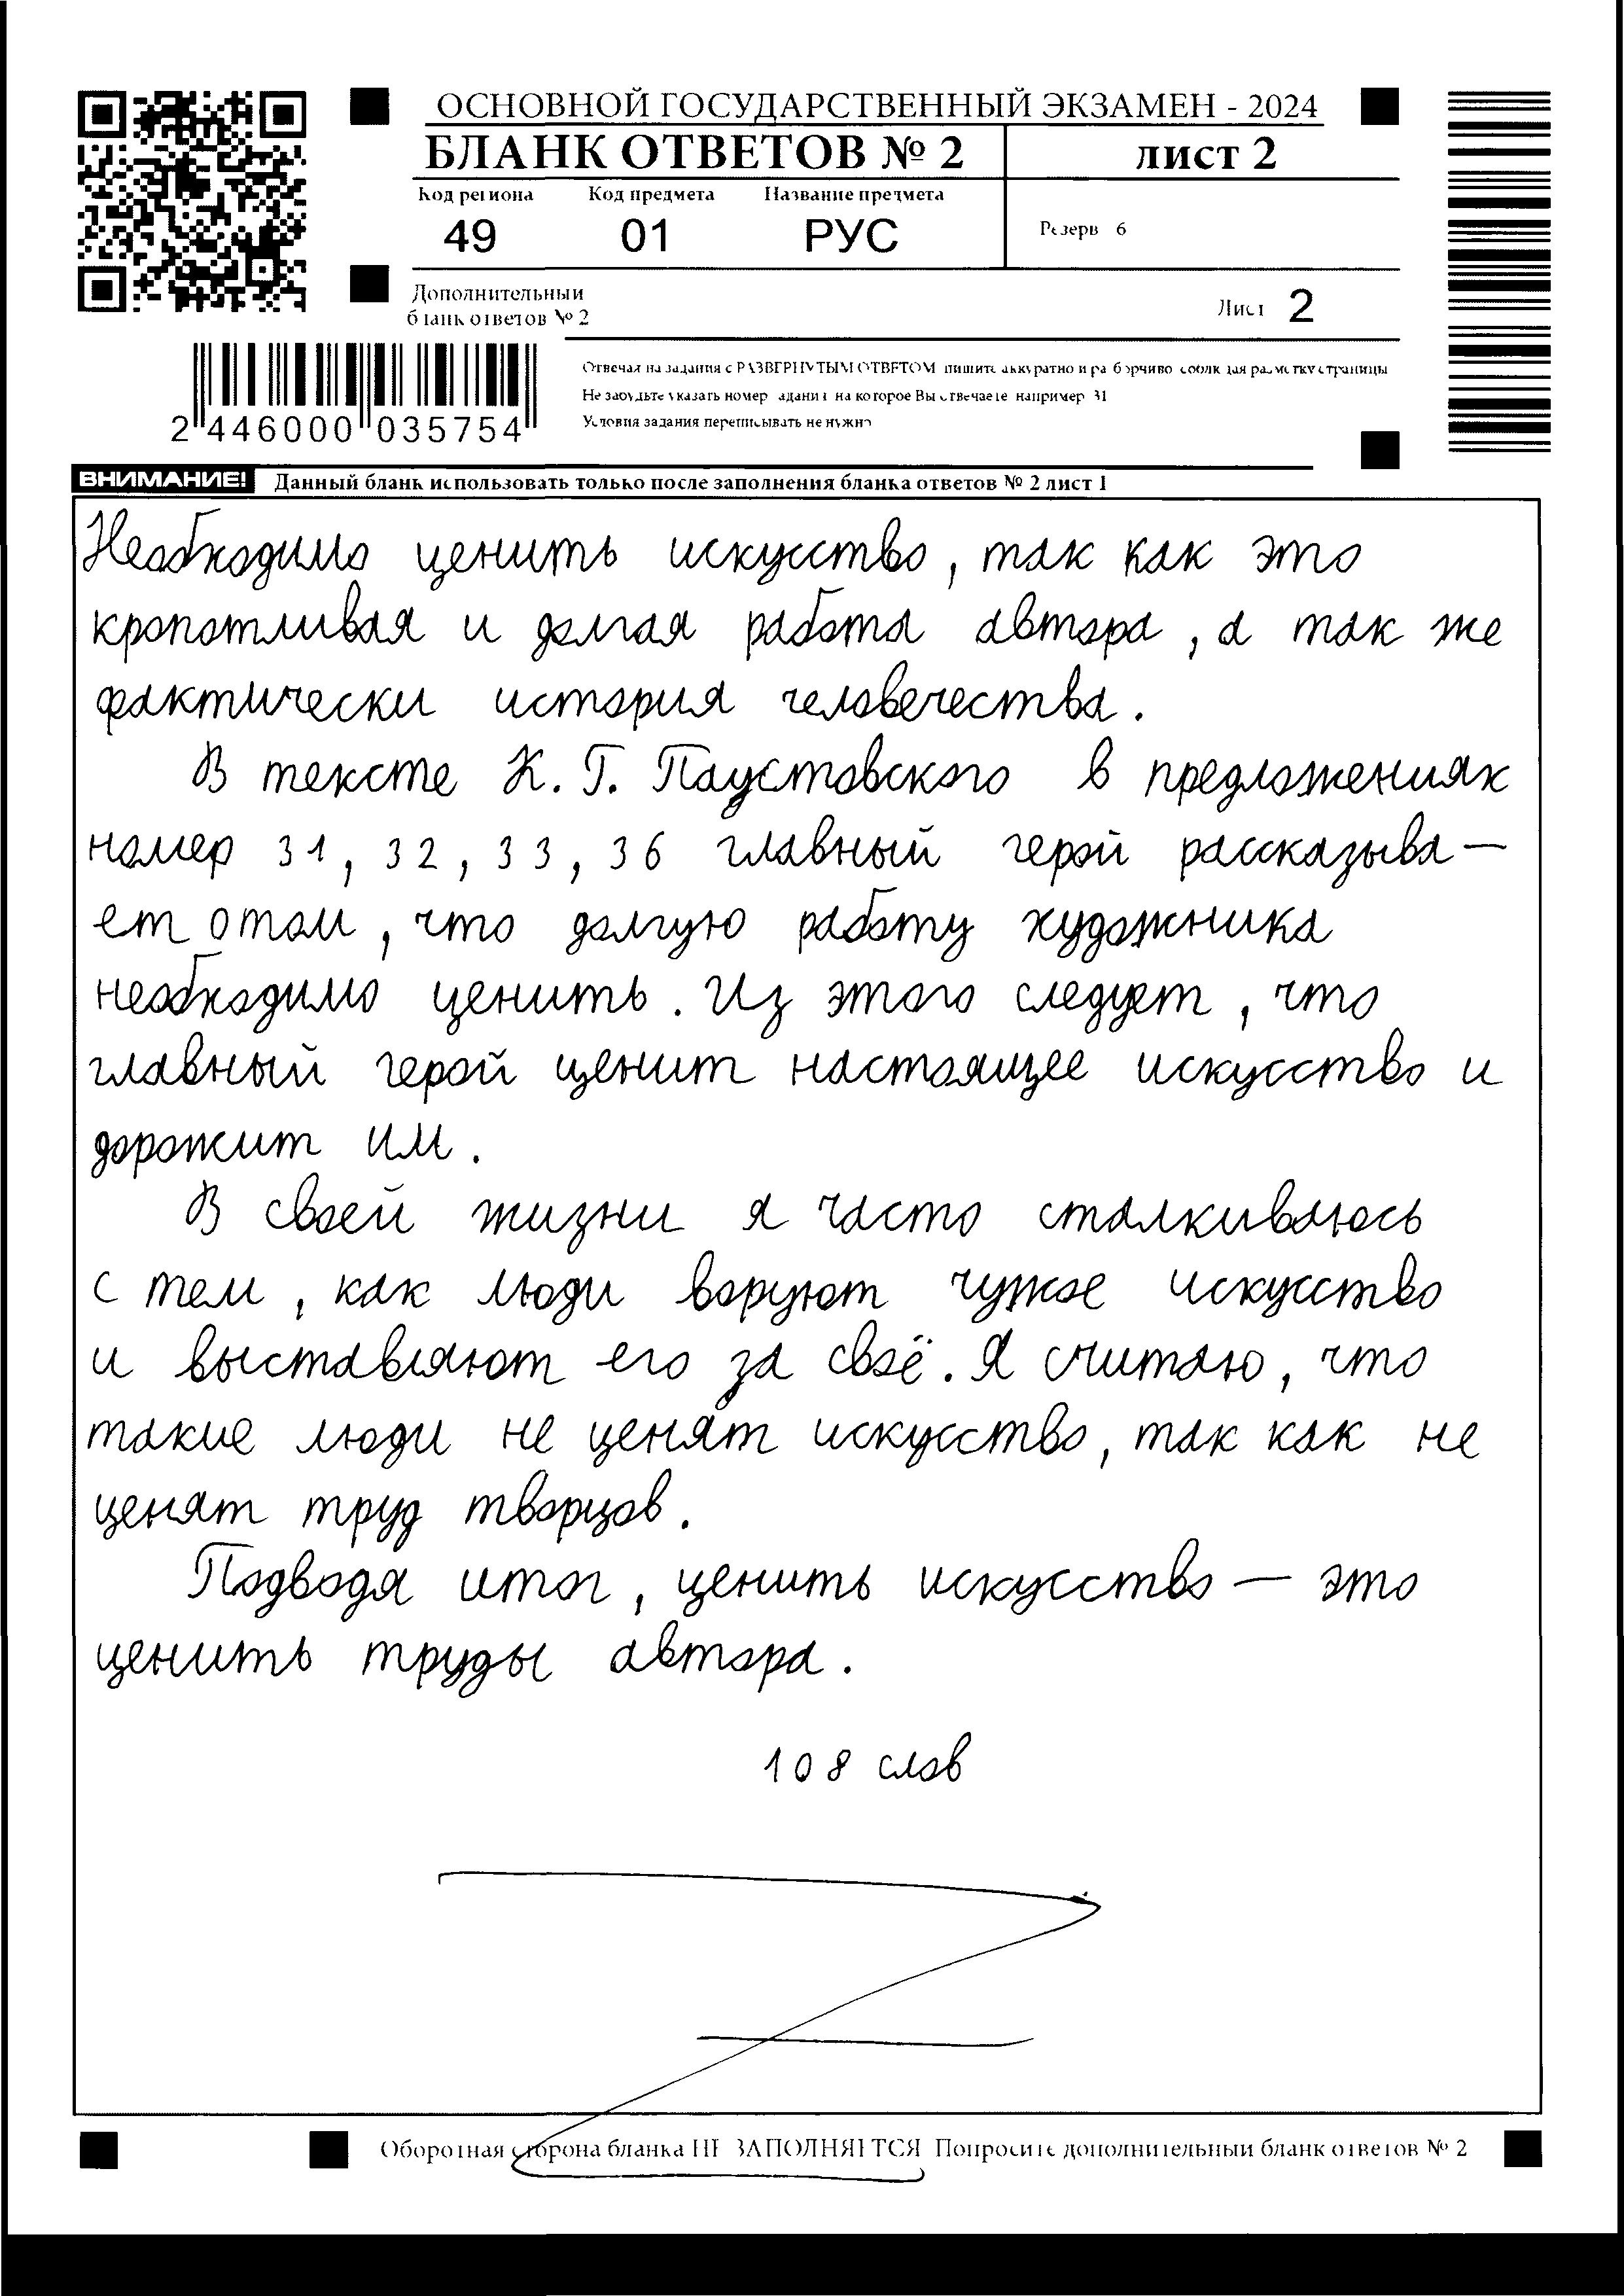 ОСНОВНОЙ ГОСУДАРСТВЕННЫЙ ЭКЗАМЕН - 2024
БЛАНК ОТВЕТОВ № 2 лист 2
Код региона Код предмета Название предмета
49 01 РУС
Резерв 6
Дополнительный
бланк ответов № 2
Лист 2
2 446000 035754
Отвечая на задания с РАЗВЕРНУТЫМ ОТВЕТОМ пишите аккуратно и разборчиво соблюдая разметку страницы
Не забудьте указать номер задания на которое Вы отвечаете например 31
Условия задания переписывать не нужно
ВНИМАНИЕ! Данный бланк использовать только после заполнения бланка ответов № 2 лист 1
Необходимо ценить искусство, так как это
кропотливая и долгая работа автора, а так же
фактически история человечества.
В тексте К. Г. Паустовского в предложениях
номер 31, 32, 33, 36 главный герой рассказыва—
ет о том, что долгую работу художника
необходимо ценить. Из этого следует, что
главный герой ценит настоящее искусство и
дорожит им.
В своей жизни я часто сталкиваюсь
с тем, как люди воруют чужое искусство
и выставляют его за своё. Я считаю, что
такие люди не ценят искусство, так как не
ценят труд творцов.
Подводя итог, ценить искусство — это
ценить труды автора.
108 слов
Оборотная сторона бланка НЕ ЗАПОЛНЯЕТСЯ Попросите дополнительный бланк ответов № 2